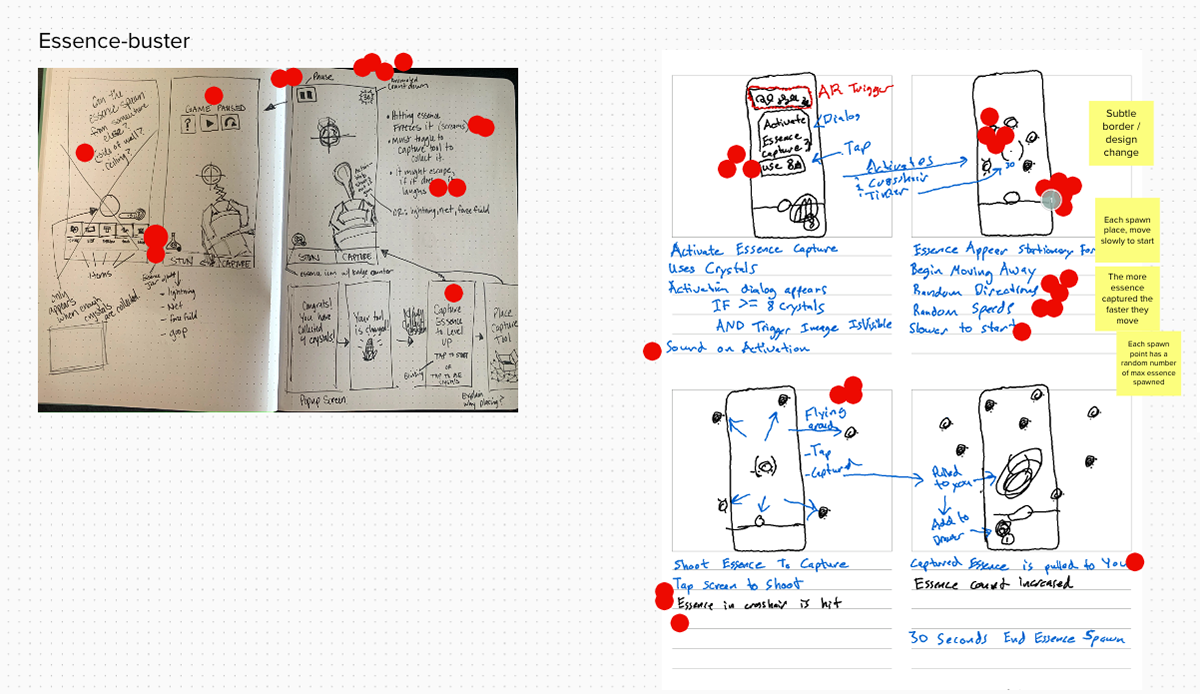 Essence-buster
Can the
essence spawn
from somewhere
else?
ceiling?
GAME PAUSED
?
Items
only
appears
when enough
crystals are collected
STUN
CAPTURE
- lightning
- Net
- force field
- goop
Pause
countdown
• Hitting essence
freezes it (screams)
• Must toggle to
capture tool to
collect it.
• It might escape,
laughs
OR: lightning, net, force field
STUN
CAPTURE
essence icon w/ badge counter
Congrats!
You have
collected
4 crystals!
Your tool
is charged!
Capture
Essence
to Level
UP
TAP TO START
OR
Place
Capture
Tool
Popup Screen
Explain
why placing?
AR Trigger
Activate
Essence
Capture?
use 8
Dialog
Tap
Activates
Crosshair
Timer
30
Activate Essence Capture
Uses Crystals
Activation dialog appears
IF >= 8 Crystals
AND Trigger Image IsVisible
Sound on Activation
Essence Appear Stationary For
Begin Moving Away
Random Directions
Random Speeds
Slower to start
Subtle
border /
design
change
Each spawn
place, move
slowly to start
The more
essence
captured the
faster they
move
Each spawn
point has a
random number
of max essence
spawned
Flying
around
- Tap
- Captured
Shoot Essence To Capture
Tap screen to shoot
Essence in crosshair is hit
Pulled
to you
Add to
Drawer
Captured Essence is pulled to You
Essence count increased
30 Seconds End Essence Spawn